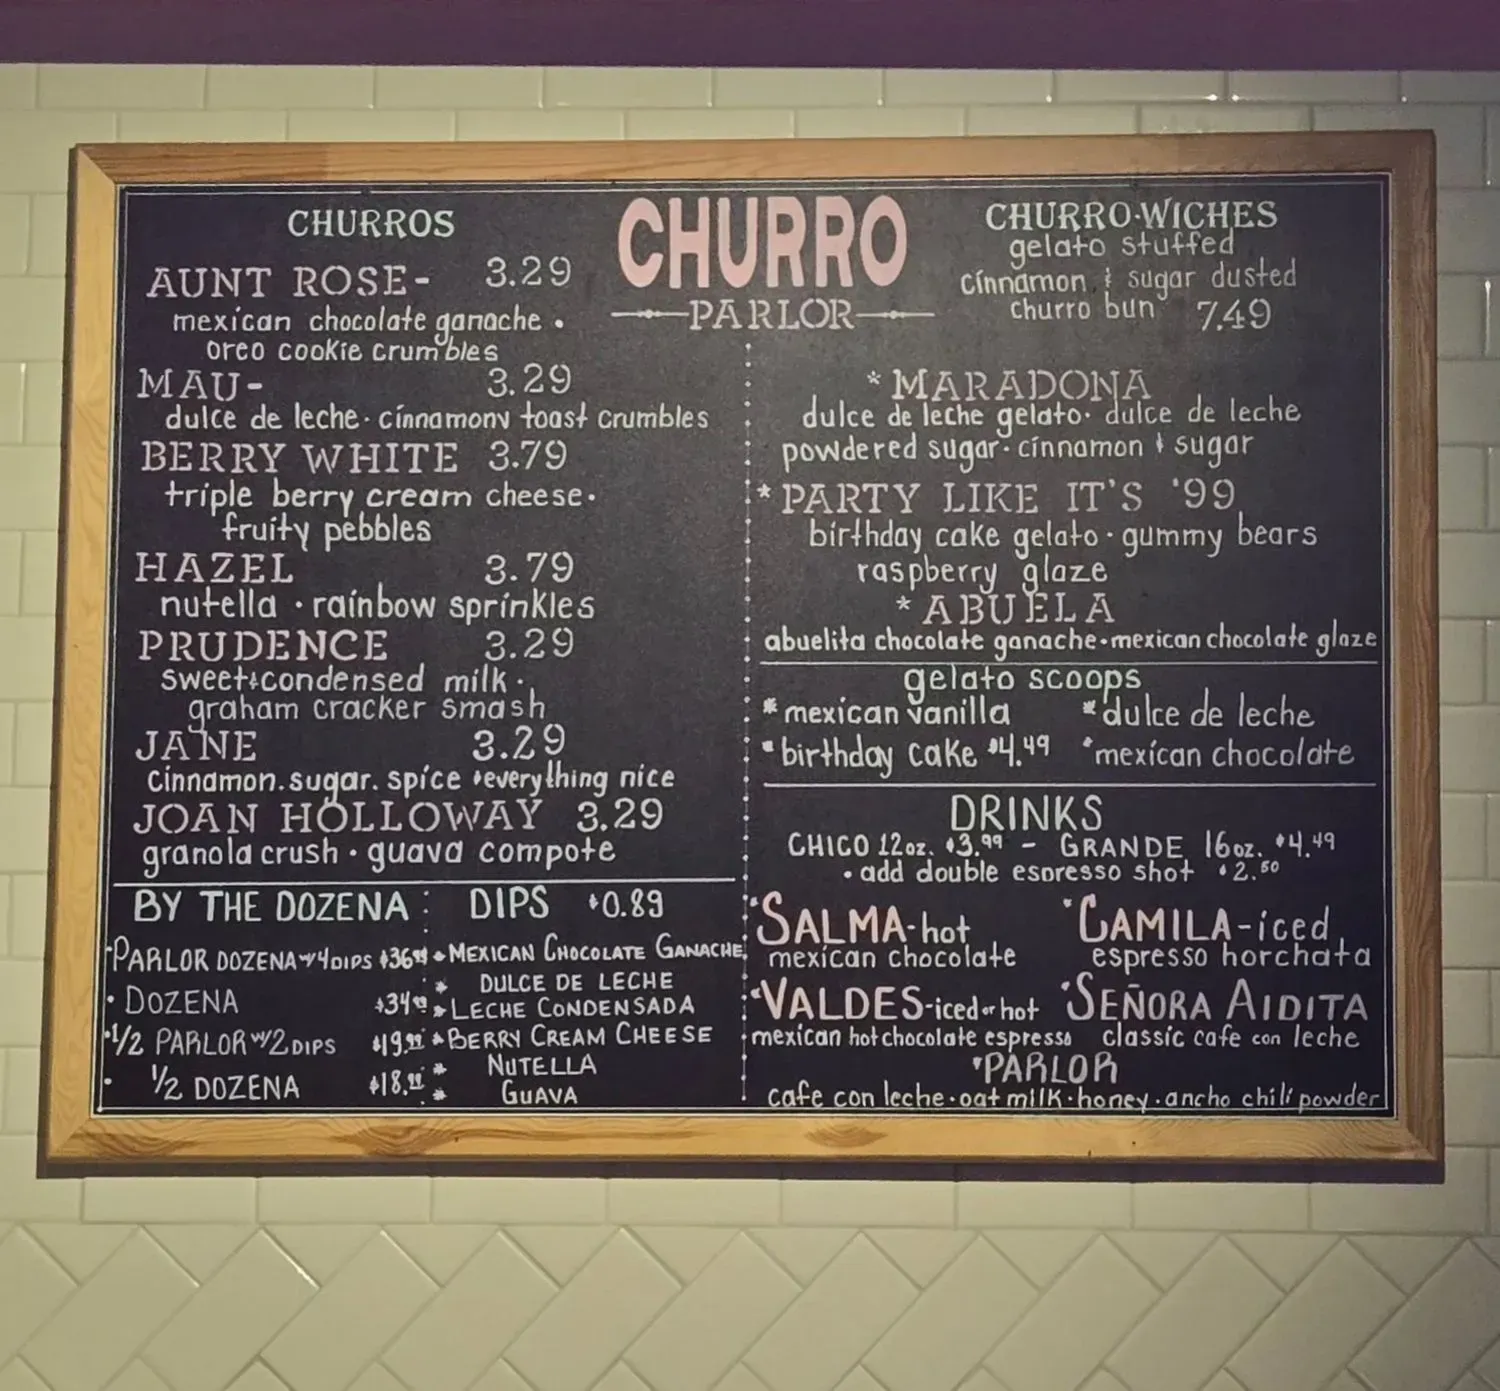 CHURRO
PARLOR
CHURROS
AUNT ROSE- 3.29
mexican chocolate ganache •
oreo cookie crumbles
MAU- 3.29
dulce de leche · cinnamony toast crumbles
BERRY WHITE 3.79
triple berry cream cheese ·
fruity pebbles
HAZEL 3.79
nutella · rainbow sprinkles
PRUDENCE 3.29
sweet & condensed milk ·
graham cracker smash
JANE 3.29
cinnamon. sugar. spice & everything nice
JOAN HOLLOWAY 3.29
granola crush · guava compote
BY THE DOZENA:
PARLOR DOZENA W/4DIPS
• DOZENA
• 1/2 PARLOR W/2DIPS
• 1/2 DOZENA
DIPS $0.89
* MEXICAN CHOCOLATE GANACHE
* DULCE DE LECHE
* LECHE CONDENSADA
* BERRY CREAM CHEESE
* NUTELLA
* GUAVA
CHURRO·WICHES
gelato stuffed
cinnamon & sugar dusted
churro bun 7.49
* MARADONA
dulce de leche gelato · dulce de leche
powdered sugar · cinnamon & sugar
* PARTY LIKE IT'S '99
birthday cake gelato · gummy bears
raspberry glaze
* ABUELA
abuelita chocolate ganache · mexican chocolate glaze
gelato scoops
* mexican vanilla * dulce de leche
* birthday cake $4.49 * mexican chocolate
DRINKS
CHICO 12oz. $3.99 - GRANDE 16oz. $4.49
• add double espresso shot $2.50
*SALMA-hot
mexican chocolate
*CAMILA-iced
espresso horchata
*VALDES-iced or hot
mexican hot chocolate espresso
*SEÑORA AIDITA
classic cafe con leche
*PARLOR
cafe con leche · oat milk · honey · ancho chili powder